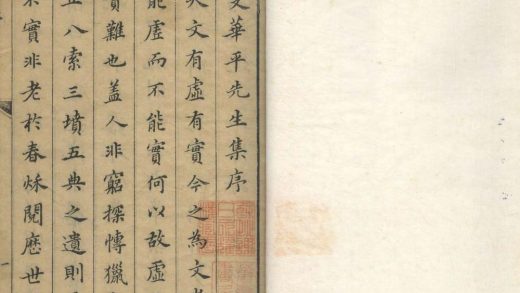 華平先生集序
夫文有虛有實今之為文
能虛而不能實何以故虛
實難也蓋人非窮探慱獵
八索三墳五典之遺則
實非老於春秋閱歷世